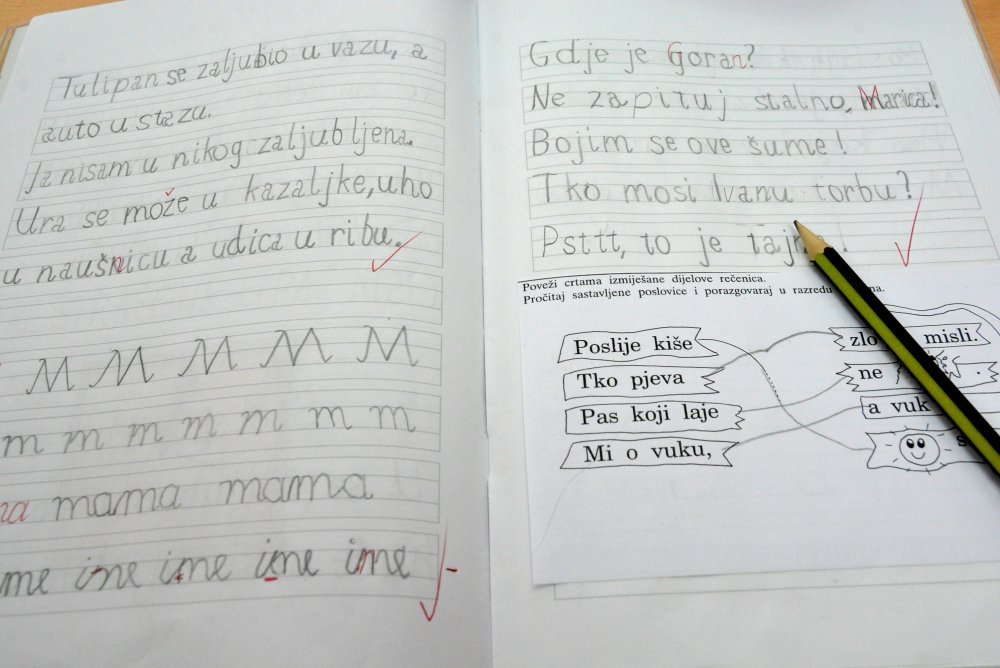 Tulipan se zaljubio u vazu, a
auto u stazu.
Ja nisam u nikog zaljubljena.
Ura se može u kazaljke, uho
u naušnicu a udica u ribu.
M M M M M
m m m m m m m
mama mama
me ime ime ime ime
Gdje je Goran?
Ne zapituj stalno, Marica!
Bojim se ove šume!
Tko mosi Ivanu torbu?
Psttt, to je !
Poveži crtama izmiješane dijelove rečenica.
Pročitaj sastavljene poslovice i porazgovaraj u razredu
Poslije kiše
Tko pjeva
Pas koji laje
Mi o vuku,
zlo misli.
ne .
a vuk